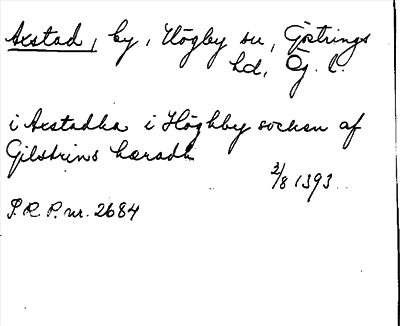 Axstad, by, Högby sn, Göstrings
hd, Ög. l.
i Axstadha i Höghby socken af
Gilstrins hæradh
2/8 1393.
P.R.P. nr. 2684